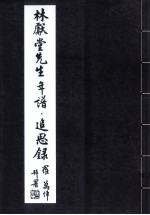 林獻堂先生年譜·追思錄
羅萬俥